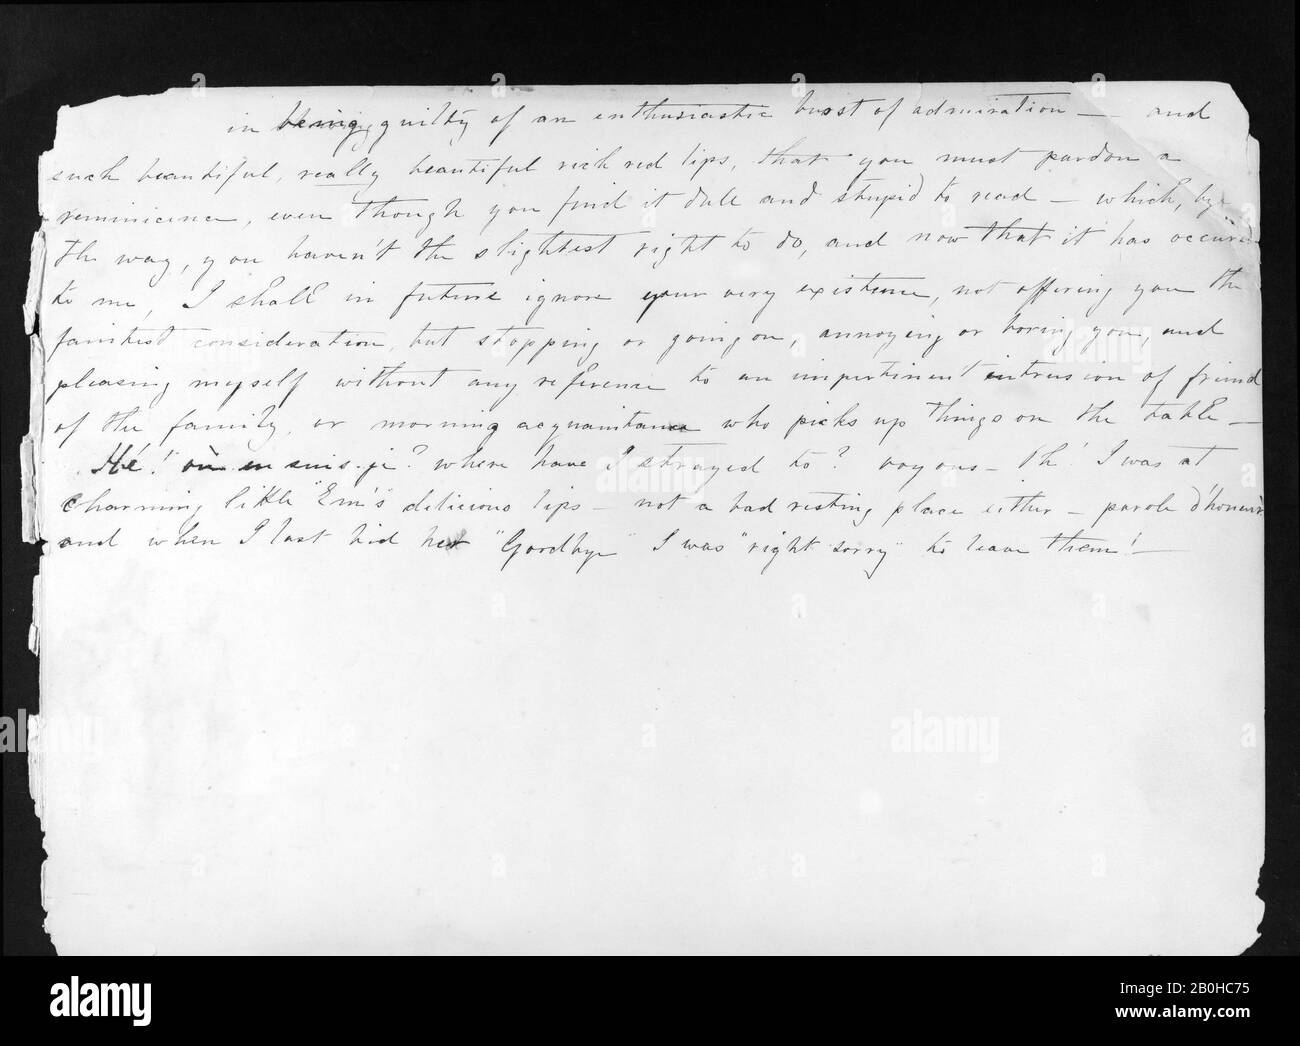 in being guilty of an enthusiastic burst of admiration — and
such beautiful, really beautiful rich red lips, that you must pardon a
reminicence, even though you find it dull and stupid to read — which, by
the way, you haven't the slightest right to do, and now that it has occured
to me, I shall in future ignore your very existence, not offering you the
faintest consideration, but stopping or going on, annoying or boring you, and
pleasing myself without any reference to an impertinent intrusion of friend
of the family, or morning acquaintance who picks up things on the table —
Hé! où en suis-je? where have I strayed to? voyons — Oh! I was at
charming little "Em's" delicious lips — not a bad resting place either — parole d'honeur!
and when I last bid her "Goodbye" I was "right sorry" to leave them! —
alamy
Image ID: B0HC75
www.alamy.com